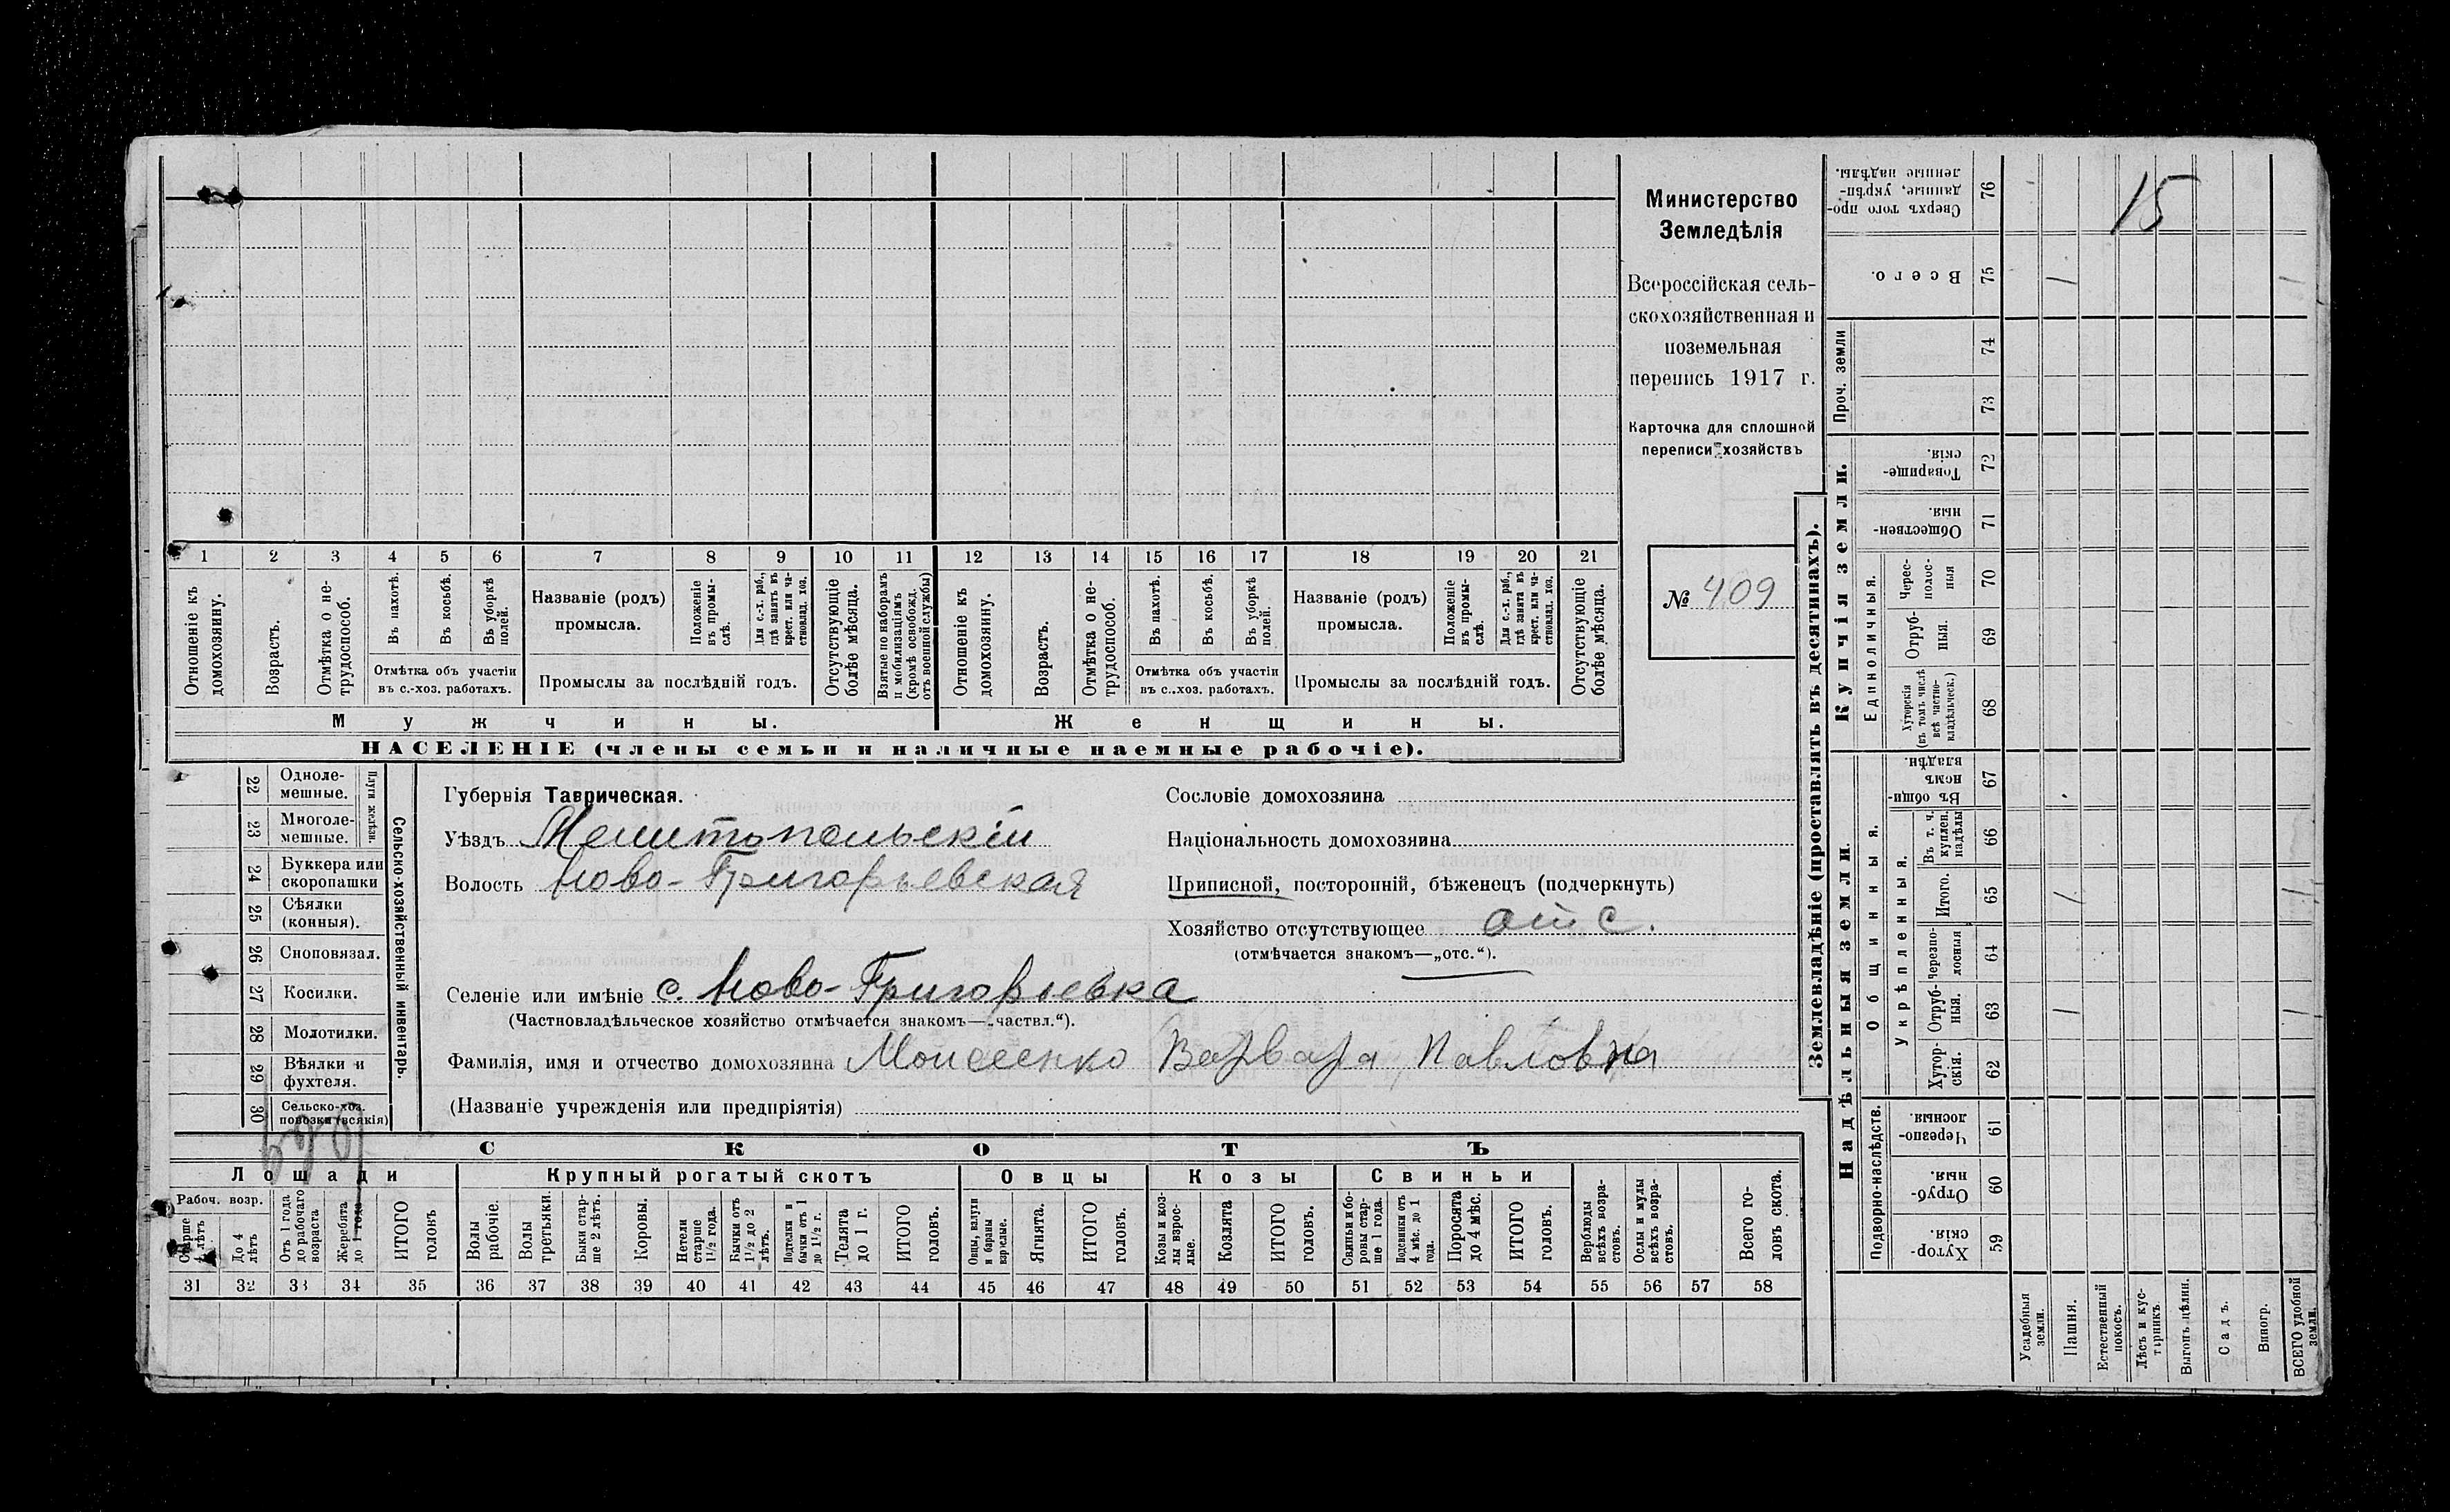 Министерство
Земледѣлія
Всероссійская сель-
скохозяйственная и
поземельная
перепись 1917 г.
Карточка для сплошной
переписи хозяйствъ
№ 409
1 2 3 4 5 6 7 8 9 10 11 12 13 14 15 16 17 18 19 20 21
Отношеніе къ домохозяину.
Возрастъ.
Отмѣтка о не-трудоспособ.
Въ пахотѣ.
Въ косьбѣ.
Въ уборкѣ полей.
Отмѣтка объ участіи
въ с.-хоз. работахъ.
Названіе (родъ)
промысла.
Положеніе въ промы-слѣ.
Для с.-х. раб., гдѣ занятъ въ крест. или ча-ствовлад. хоз.
Промыслы за послѣдній годъ.
Отсутствующіе болѣе мѣсяца.
Взятые по наборамъ и мобилизаціямъ (кромѣ освобожд. отъ военной службы)
Отношеніе къ домохозяину.
Возрастъ.
Отмѣтка о не-трудоспособ.
Въ пахотѣ.
Въ косьбѣ.
Въ уборкѣ полей.
Отмѣтка объ участіи
въ с.-хоз. работахъ.
Названіе (родъ)
промысла.
Положеніе въ промы-слѣ.
Для с.-х. раб., гдѣ занята въ крест. или ча-ствовлад. хоз.
Промыслы за послѣдній годъ.
Отсутствующіе болѣе мѣсяца.
Мужчины.
Женщины.
НАСЕЛЕНІЕ (члены семьи и наличные наемные рабочіе).
Сельско-хозяйственный инвентарь.
Плуги желѣзн.
22 Одноле-мешные.
23 Многоле-мешные.
24 Буккера или скоропашки
25 Сѣялки (конныя).
26 Сноповязал.
27 Косилки.
28 Молотилки.
29 Вѣялки и фухтеля.
30 Сельско-хоз. повозки (всякія)
Губернія Таврическая.
Уѣздъ Мелитопольскій
Волость Ново-Григорьевская
Селеніе или имѣніе с. Ново-Григорьевка
(Частновладѣльческое хозяйство отмѣчается знакомъ—„частвл.“).
Фамилія, имя и отчество домохозяина Моисеенко Варвара Павловна
(Названіе учрежденія или предпріятія)
Сословіе домохозяина
Національность домохозяина
Приписной, посторонній, бѣженецъ (подчеркнуть)
Хозяйство отсутствующее отс.
(отмѣчается знакомъ—„отс.“).
СКОТЪ
Лошади
Крупный рогатый скотъ
Овцы
Козы
Свиньи
Рабоч. возр.
Старше 4 лѣтъ
До 4 лѣтъ
Отъ 1 года до рабочаго возраста
Жеребята до 1 года
ИТОГО головъ
Волы рабочіе.
Волы третьяки.
Быки стар-ше 2 лѣтъ.
Коровы.
Нетели старше 1½ года.
Бычки отъ 1½ до 2 лѣтъ.
Подтелки и бычки отъ 1 до 1½ г.
Телята до 1 г.
ИТОГО головъ.
Овцы, валухи и бараны взрослые.
Ягнята.
ИТОГО головъ.
Козы и коз-лы взрос-лые.
Козлята
ИТОГО головъ.
Свиньи и бо-ровы стар-ше 1 года.
Подсвинки отъ 4 мѣс. до 1 года.
Поросята до 4 мѣс.
ИТОГО головъ.
Верблюды всѣхъ возра-стовъ.
Ослы и мулы всѣхъ возра-стовъ.
Всего го-ловъ скота.
31 32 33 34 35 36 37 38 39 40 41 42 43 44 45 46 47 48 49 50 51 52 53 54 55 56 57 58
Землевладѣніе (проставлять въ десятинахъ).
15
76 Сверхъ того про-данные, укрѣп-ленные надѣлы.
75 Всего.
Проч. земли
74
73
Купчія земли.
72 Товарище-скія.
71 Обществен-ныя.
Единоличныя.
70 Черес-полос-ныя
69 Отруб-ныя.
68 Хуторскія (въ томъ числѣ всѣ частно-владѣльческ.)
Надѣльныя земли.
Общинныя.
67 Въ общин-номъ владѣн.
Укрѣпленныя.
66 Въ т. ч. куплен. надѣлы
65 Итого.
64 Черезпо-лосныя
63 Отруб-ныя.
62 Хутор-скія.
Подворно-наслѣдств.
61 Черезпо-лосныя.
60 Отруб-ныя.
59 Хутор-скія.
Усадебныя земли.
Пашня.
Естественный покосъ.
Лѣсъ и кус-тарникъ.
Выгонъ, цѣлин.
Садъ.
Виногр.
ВСЕГО удобной земли.